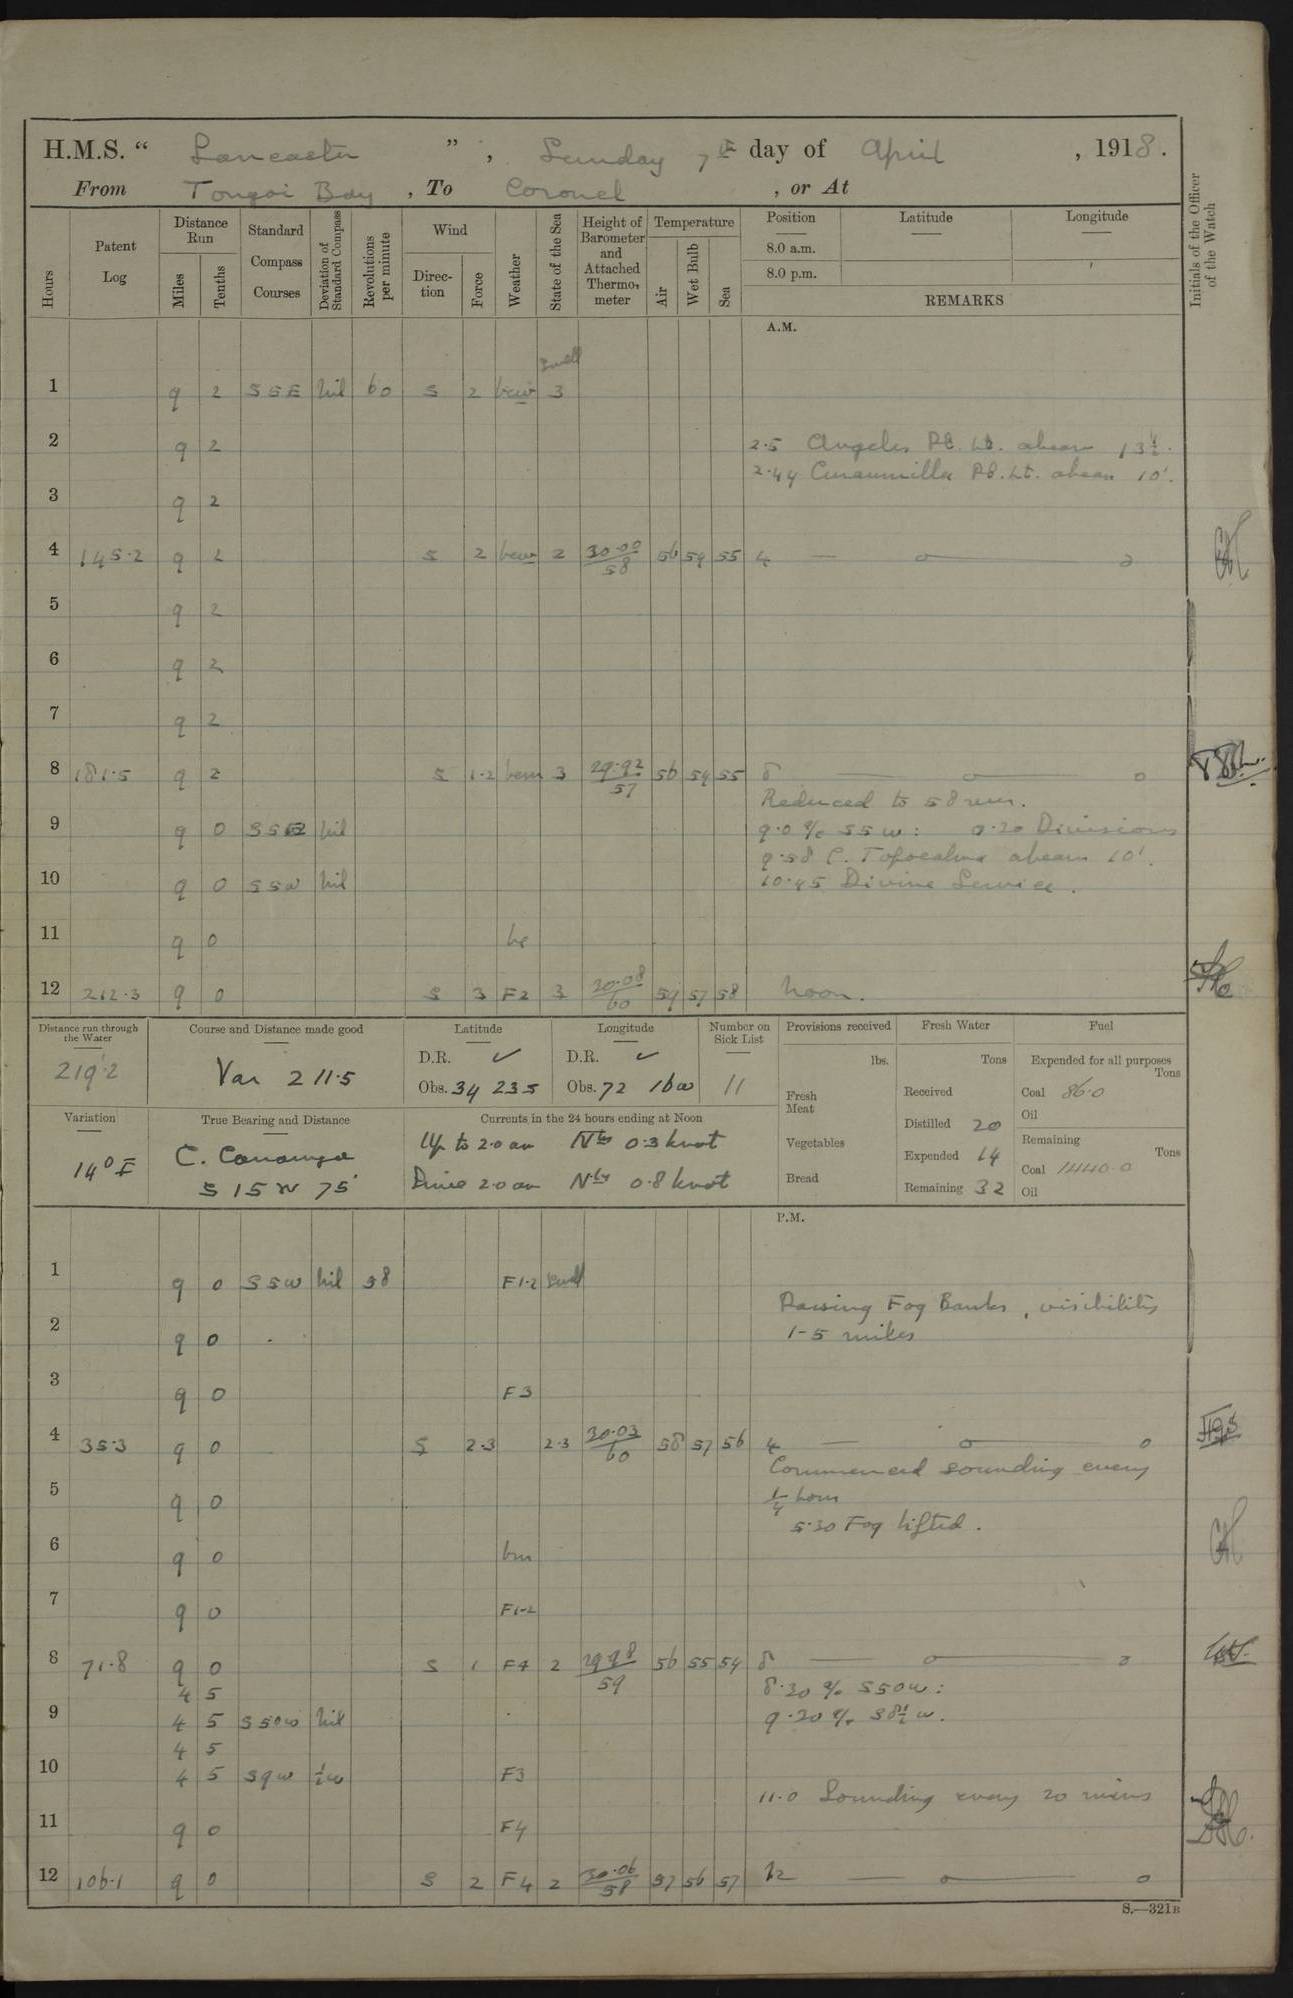 H.M.S. “ Lancaster ” , Sunday 7th day of April , 1918.
From Tongoi Bay , To Coronel , or At
Hours
Patent Log
Distance Run
Miles
Tenths
Standard Compass Courses
Deviation of Standard Compass
Revolutions per minute
Wind
Direction
Force
Weather
State of the Sea
Height of Barometer and Attached Thermometer
Temperature
Air
Wet Bulb
Sea
Position
8.0 a.m.
8.0 p.m.
Latitude
Longitude
REMARKS
Initials of the Officer of the Watch
A.M.
Swell
1 9 2 SSE Nil 60 S 2 bcw 3
2 9 2 2.5 Angeles Pt. Lt. abeam 13½'.
2.44 Curaumilla Pt. Lt. abeam 10'.
3 9 2
4 145.2 9 2 S 2 bcw 2 30.00/58 56 54 55 4 — o — o
5 9 2
6 9 2
7 9 2
8 181.5 9 2 S 1.2 bcm 3 29.92/57 56 54 55 8 — o — o
Reduced to 58 revs.
9 9 0 SSE Nil 9.0 a/c SSW : 9.20 Divisions
9.58 P. Topocalma abeam 10'.
10 9 0 SSW Nil 10.45 Divine Service.
11 9 0 bc
12 212.3 9 0 S 3 F2 3 30.08/60 59 57 58 Noon.
Distance run through the Water
219.2
Course and Distance made good
Var 211.5
Latitude
D.R. ✓
Obs. 34 23 S
Longitude
D.R. ✓
Obs. 72 16 W
Number on Sick List
11
Provisions received
lbs.
Fresh Meat
Vegetables
Bread
Fresh Water
Tons
Received
Distilled 20
Expended 14
Remaining 32
Fuel
Expended for all purposes
Tons
Coal 86.0
Oil
Remaining
Tons
Coal 1440.0
Oil
Variation
14° E
True Bearing and Distance
C. Carranza
S 15 W 75'
Currents in the 24 hours ending at Noon
Up to 2.0 am Nly 0.3 knot
Since 2.0 am Nly 0.8 knot
P.M.
1 9 0 SSW Nil 58 F1-2 Swell
Passing Fog Banks, visibility
2 9 0 1-5 miles
3 9 0 F3
4 35.3 9 0 S 2.3 2.3 30.03/60 58 57 56 4 — o — o
Commenced sounding every
5 9 0 ¼ hour
5.30 Fog lifted.
6 9 0 bm
7 9 0 F1-2
8 71.8 9 0 S 1 F4 2 29.98/59 56 55 54 8 — o — o
4 5 8.30 a/c S50W :
9 4 5 S50W Nil 9.20 a/c S8½W.
4 5
10 4 5 S9W ½W F3
11.0 Sounding every 20 mins
11 9 0 F4
12 106.1 9 0 S 2 F4 2 30.06/58 57 56 57 12 — o — o
S.—321B